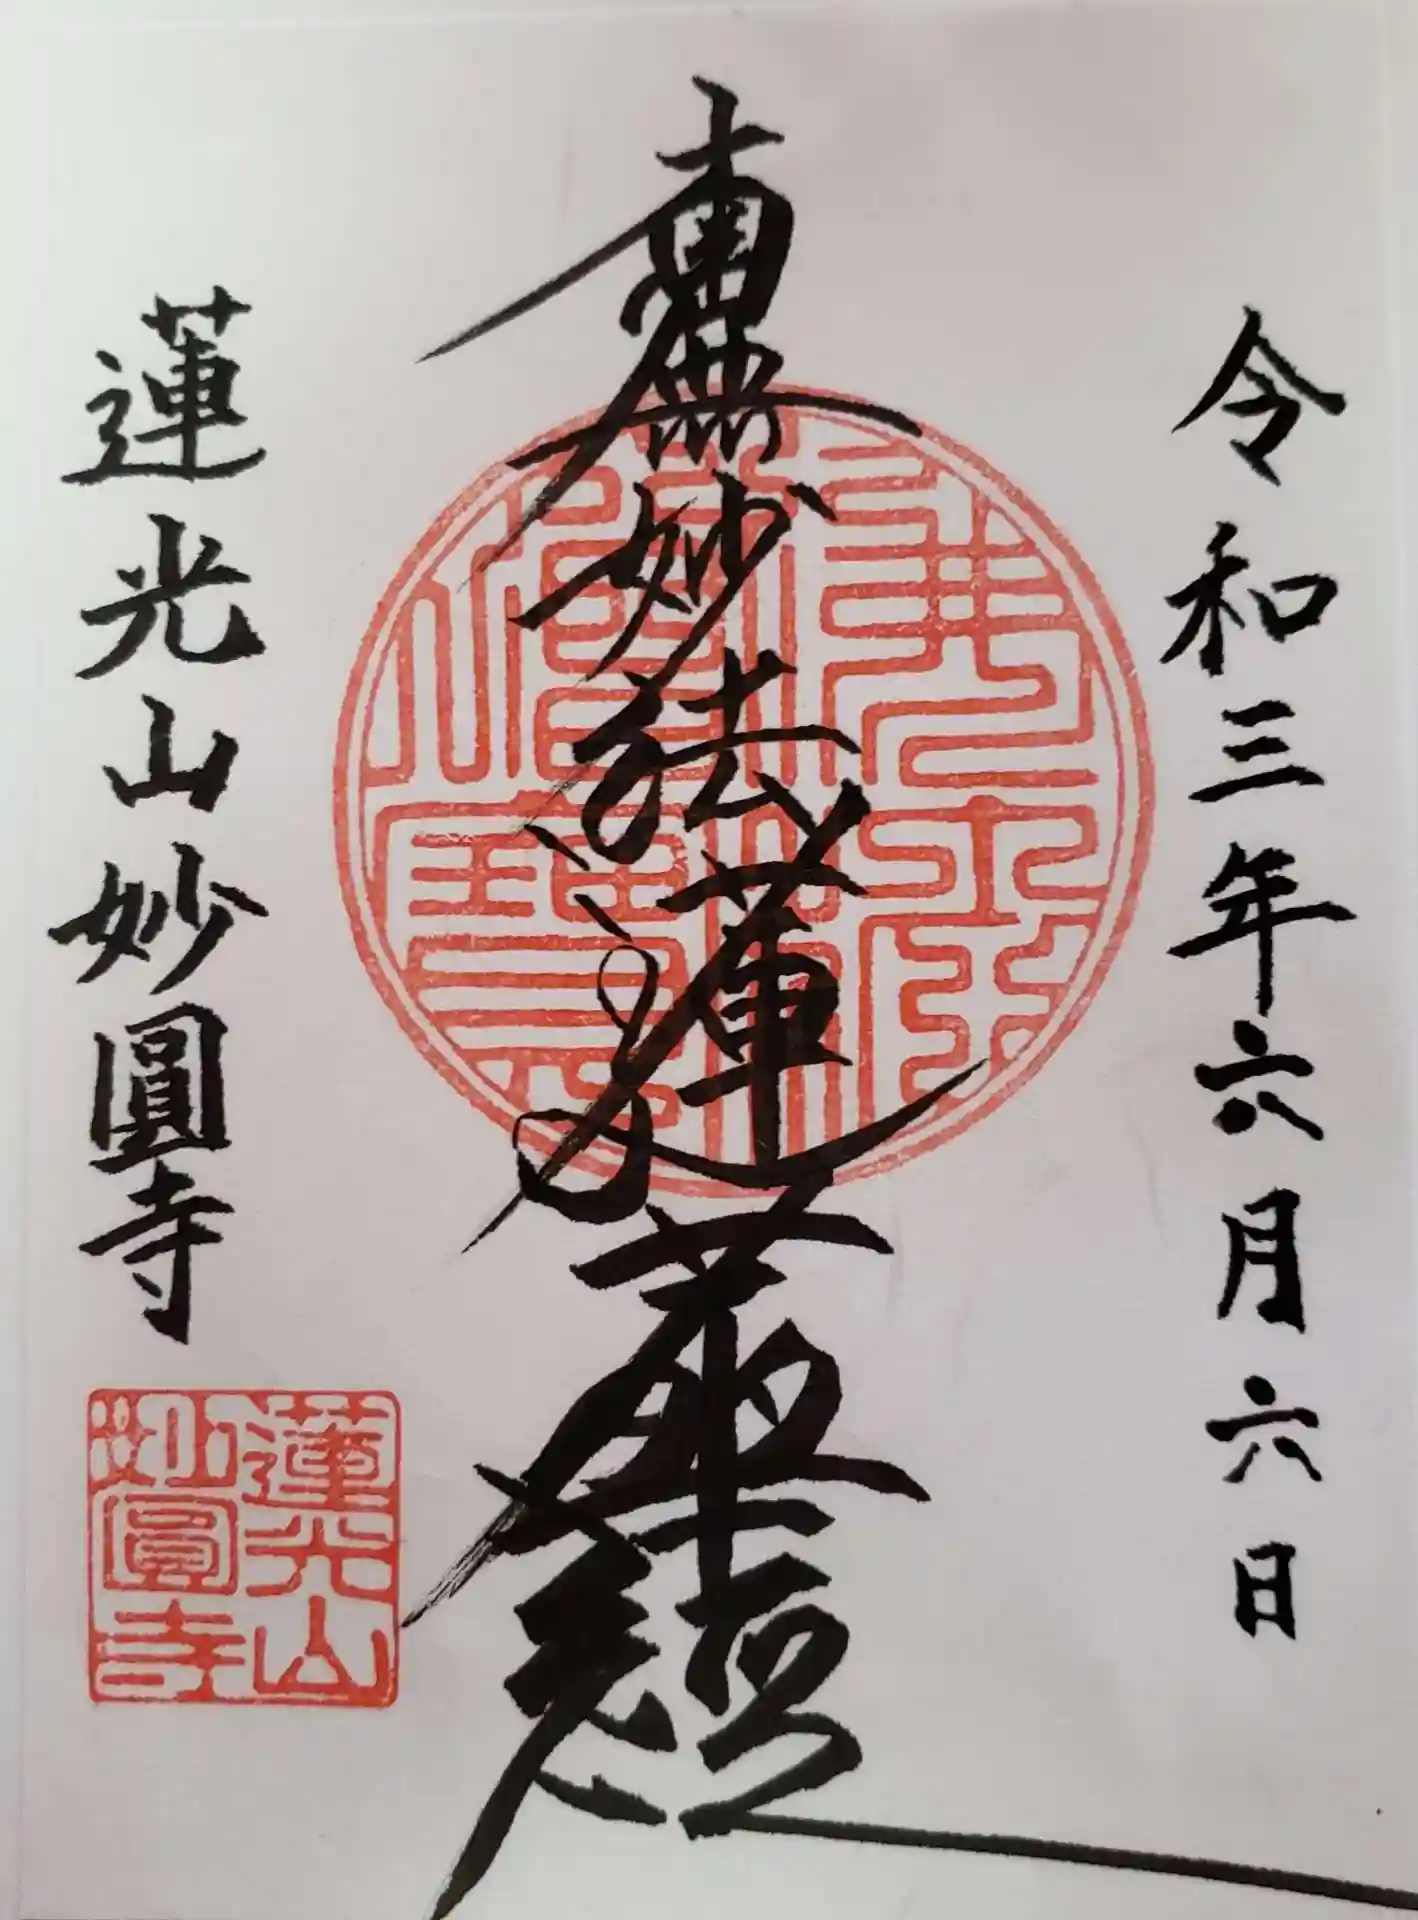 令和三年六月六日
南無妙法蓮華経
蓮光山妙圓寺
佛法僧寶
蓮光山
妙圓寺